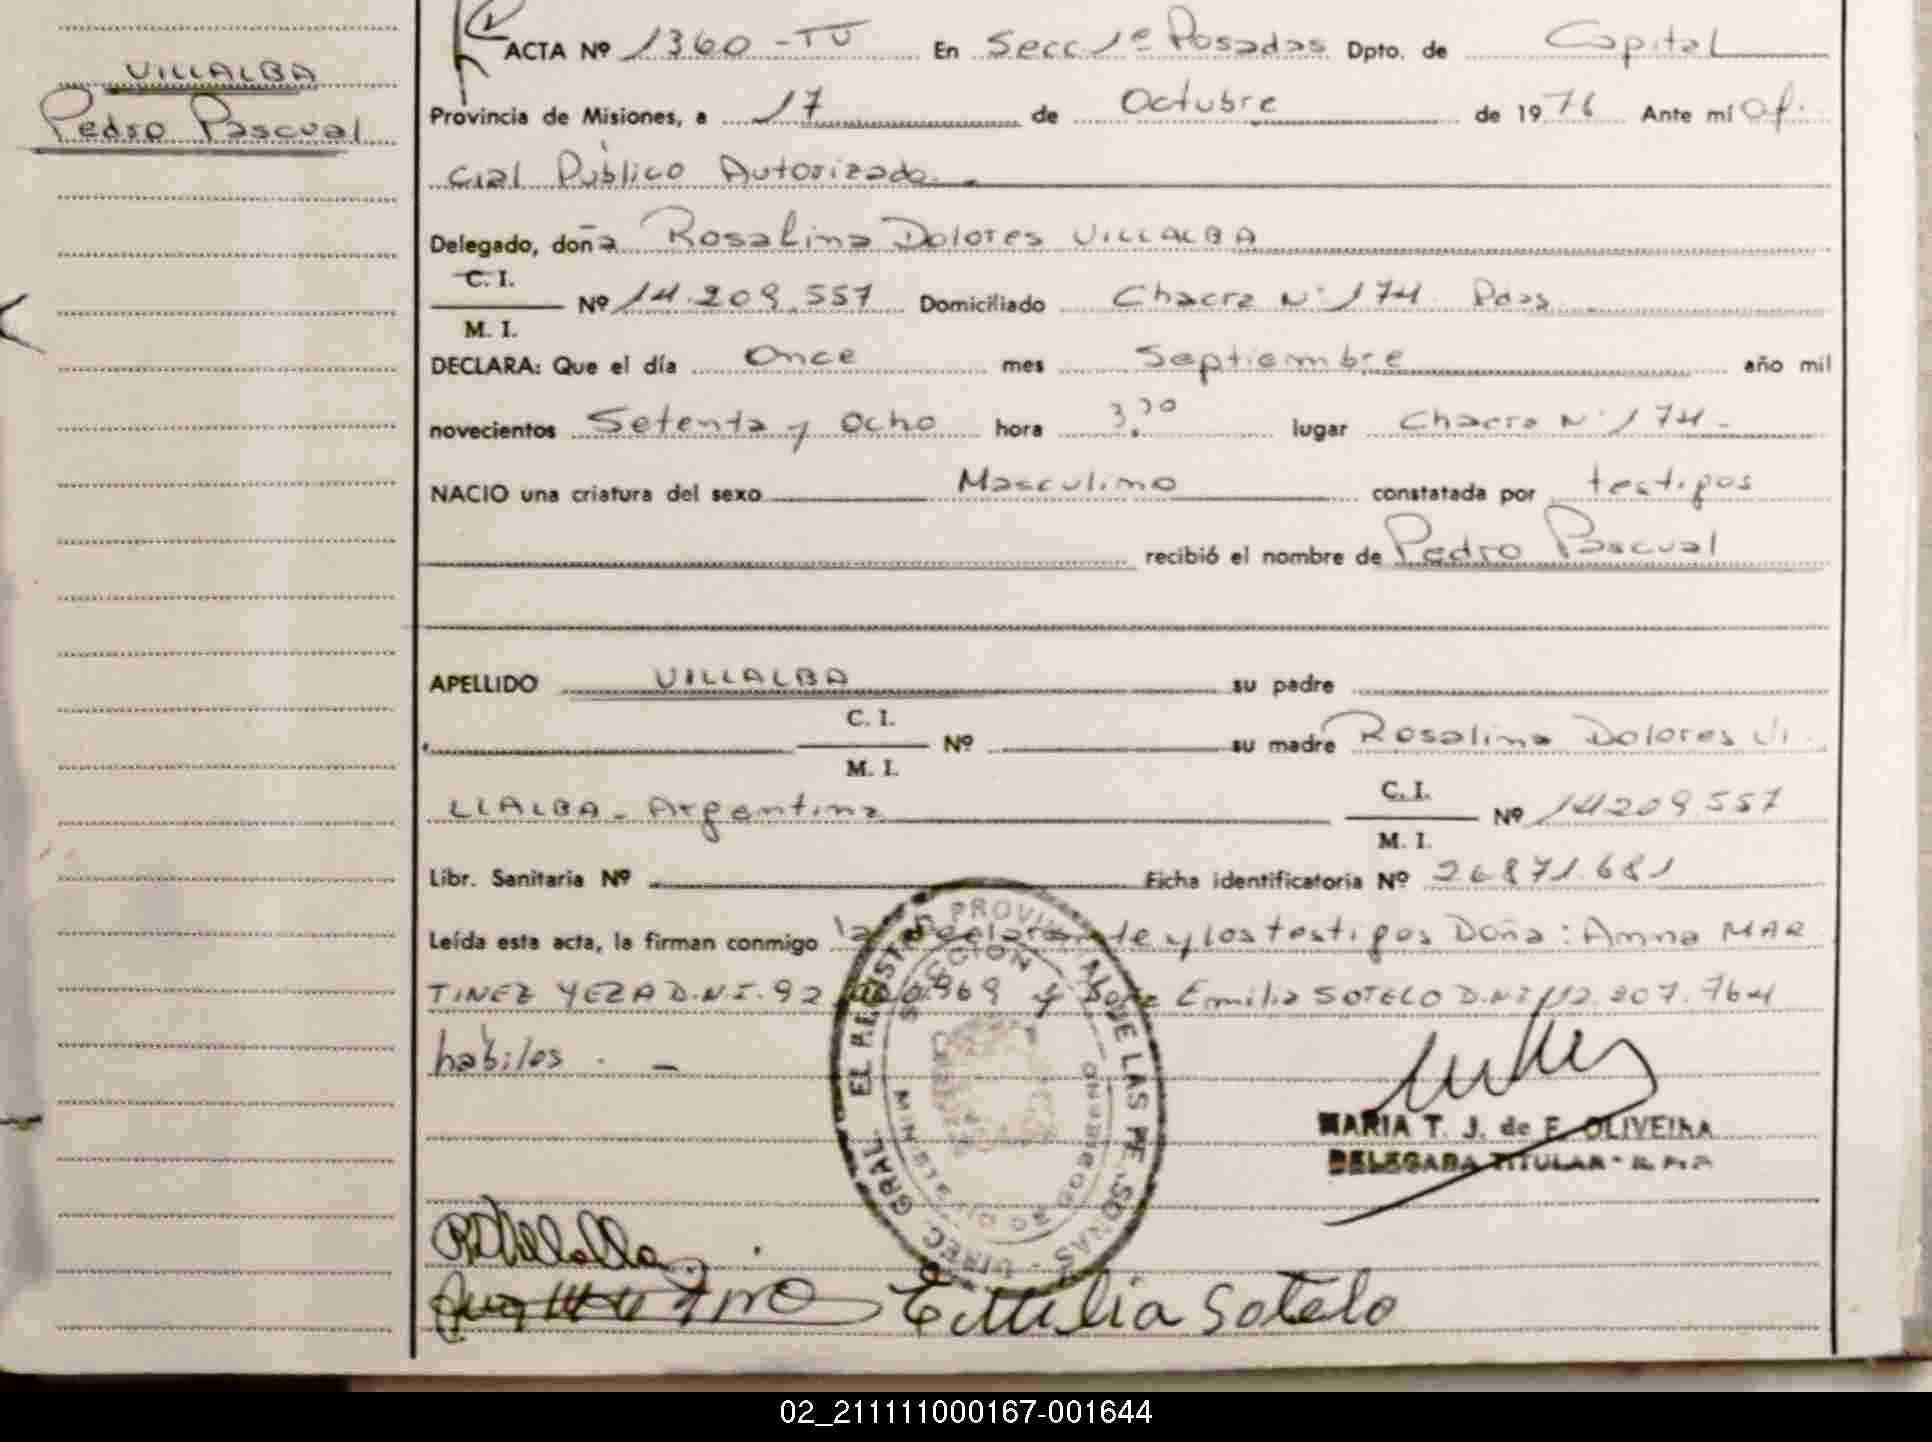 ACTA Nº 1360 - TU En Secc. 1ª Posadas Dpto. de Capital
VILLALBA
Pedro Pascual
Provincia de Misiones, a 17 de Octubre de 1976 Ante mí Ofi.
cial Público Autorizado.-
Delegado, doña Rosalina Dolores VILLALBA
C. I.
M. I.
Nº 14.209.557 Domiciliado Chacra Nº 174 Pdas.
DECLARA: Que el día Once mes Septiembre año mil
novecientos Setenta y Ocho hora 3,30 lugar Chacra Nº 174-
NACIO una criatura del sexo Masculino constatada por testigos
recibió el nombre de Pedro Pascual
APELLIDO VILLALBA su padre
C. I.
M. I.
Nº su madre Rosalina Dolores Vi.
LLALBA - Argentina
C. I.
M. I.
Nº 14209.557
Libr. Sanitaria Nº Ficha identificatoria Nº 26871.681
Leída esta acta, la firman conmigo la declarante y los testigos Doña: Anna MAR
TINEZ YEZA D.N.I. 92 969 y Emilia SOTELO D.N.I 12.207.764
habiles. -
EL REGISTRO PROVINCIAL DE LAS PERSONAS - DIREC. GRAL.
SECCION
MINIST. DE GOBIERNO
MARIA T. J. de F. OLIVEIRA
DELEGADA TITULAR - R.P.P.
RDVillalba
Emilia Sotelo
02_211111000167-001644